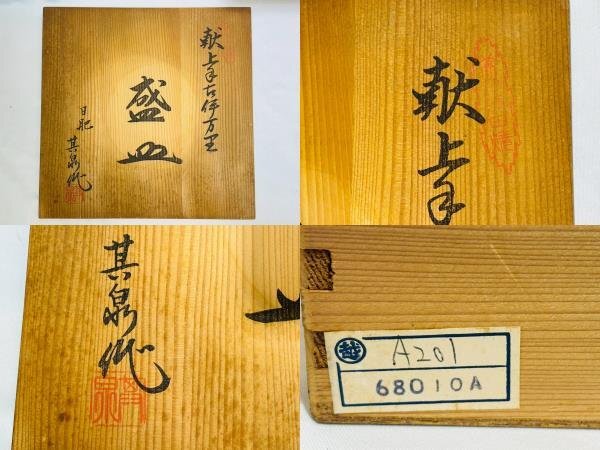 献上手古伊万里
盛皿
肥
其泉作
献上手
其泉作
越
A201
68010A